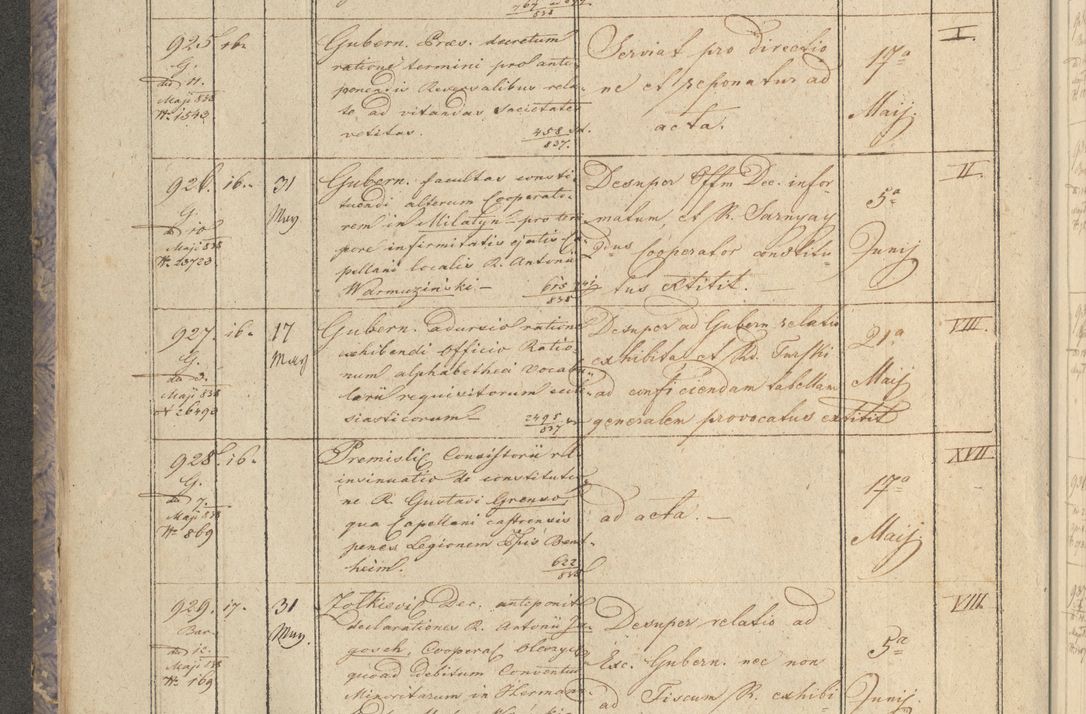 925. 16.
G.
dto 11.
Maji 838
N. 1543
Gubern. Præs. decretum
ratione termini pro anti-
ponendis Reversalibus rela-
te ad vitandas societates
vetitas. 458
837.
Serviat pro directio
ne et reponatur ad
acta.
17a
Maij.
I.
926. 16.
G.
dto 10
Maji 838
N. 23723
31
May
Gubern. facultas consti
tuendi alterum Cooperato-
rem in Milatyn pro tem-
pore infirmitatis ejatis Ca-
pellani localis R. Antonii
Warmuziński —
615
838
Desuper Offm Dec. infor
matum, et R. Sarnyay
Cooperator constitu-
tus extitit. —
5a
Junij
II.
927. 16.
G.
dto 3.
Maji 838
N 26493
17
May
Gubern. adursio ratione
exhibendi Officio Ratio
num alphabethici Vocabu-
larii requisitorum eccle-
siasticorum —
2495
837
Desuper ad Gubern relatio
exhibita et Rd. Turski
ad conficiendam tabellam
generalem provocatus extitit
21a
Maij
VIII.
928. 16.
G.
dto 7.
Maji 838
N. 869
Premislic Consistorii
insinuatio de constituti-
ne R. Gustavi
qua Capellani castrensis
penes Legionem Bent-
heim.
622
838
ad acta. —
17a
Maij.
XVII.
929. 17.
Bar.
dto 12.
Maji 838
N. 169
31
May.
Zolkievi Dec. anteponit
declarationes R. Antonii
quoad debitum Conventus
Minoritarum in
Desuper relatio ad
Exc. Gubern. nec non
ad Fiscum R. exhibi
5a
Junij
VIII.